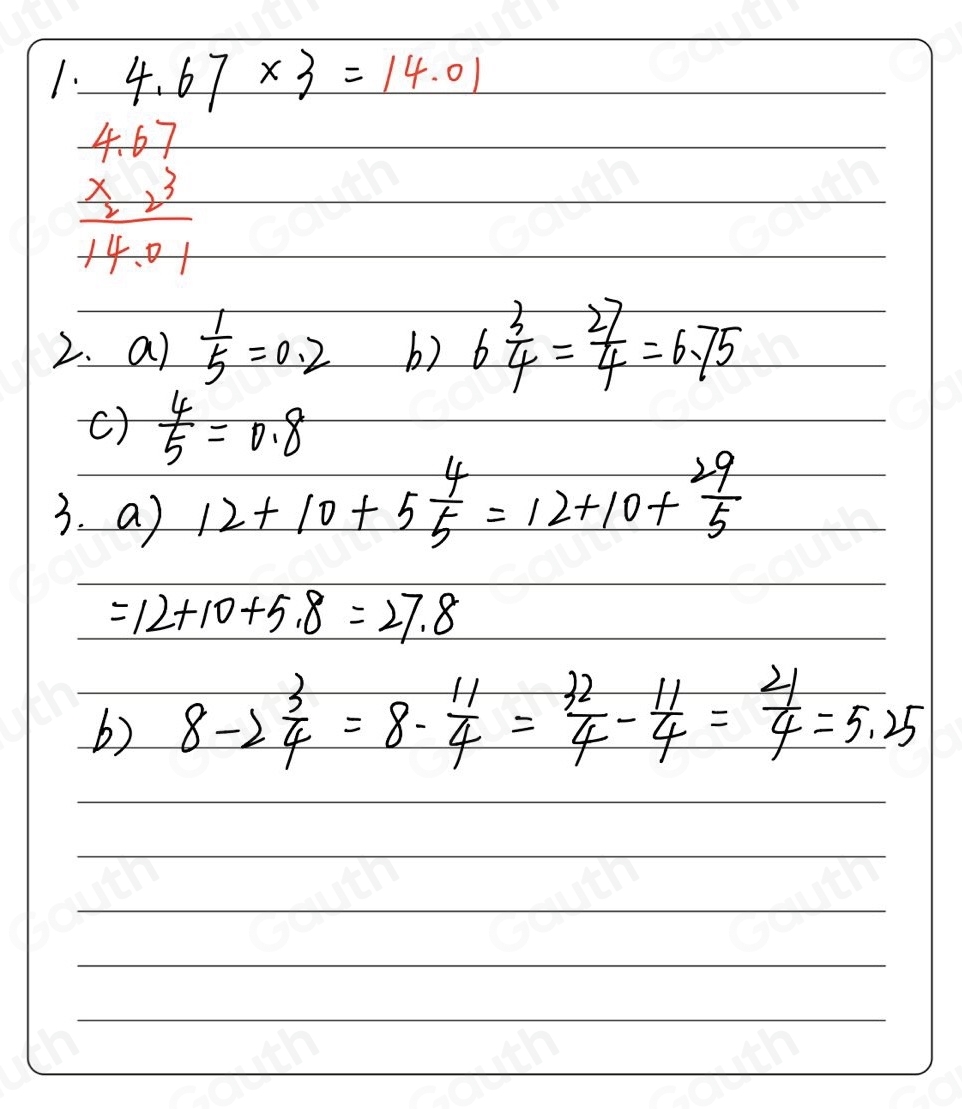 1. 4.67 × 3 = 14.01
4.67
× 2 2 3
14.01
2. a) 1/5 = 0.2 b) 6 3/4 = 27/4 = 6.75
c) 4/5 = 0.8
3. a) 12 + 10 + 5 4/5 = 12 + 10 + 29/5
= 12 + 10 + 5.8 = 27.8
b) 8 - 2 3/4 = 8 - 11/4 = 32/4 - 11/4 = 21/4 = 5.25
Gauth